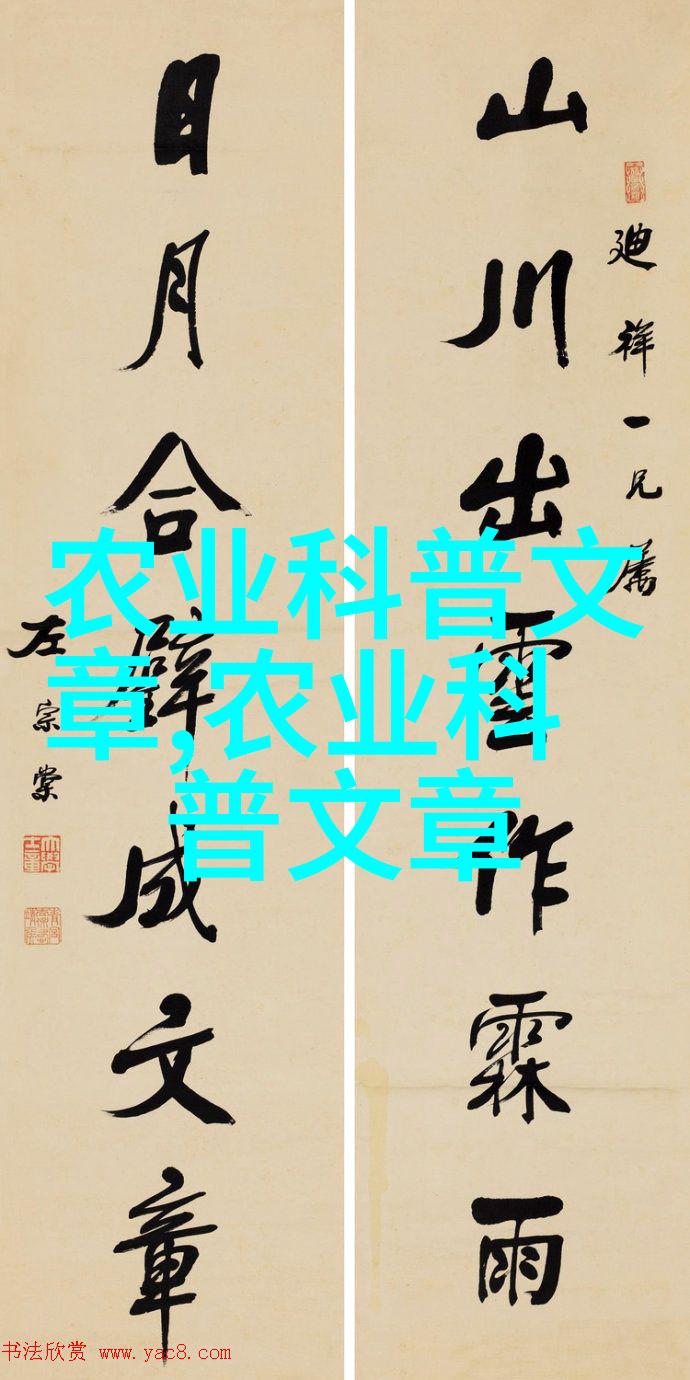 廸祥一兄屬
山川出雲作霖雨
日月合璧成文章
左宗棠
农业科普文
章,农业科
普文章
书法欣赏 www.yac8.com